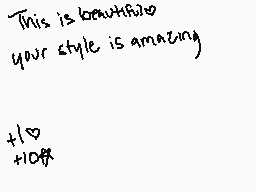 This is beautiful♡
your style is amazing
+1♡
+10